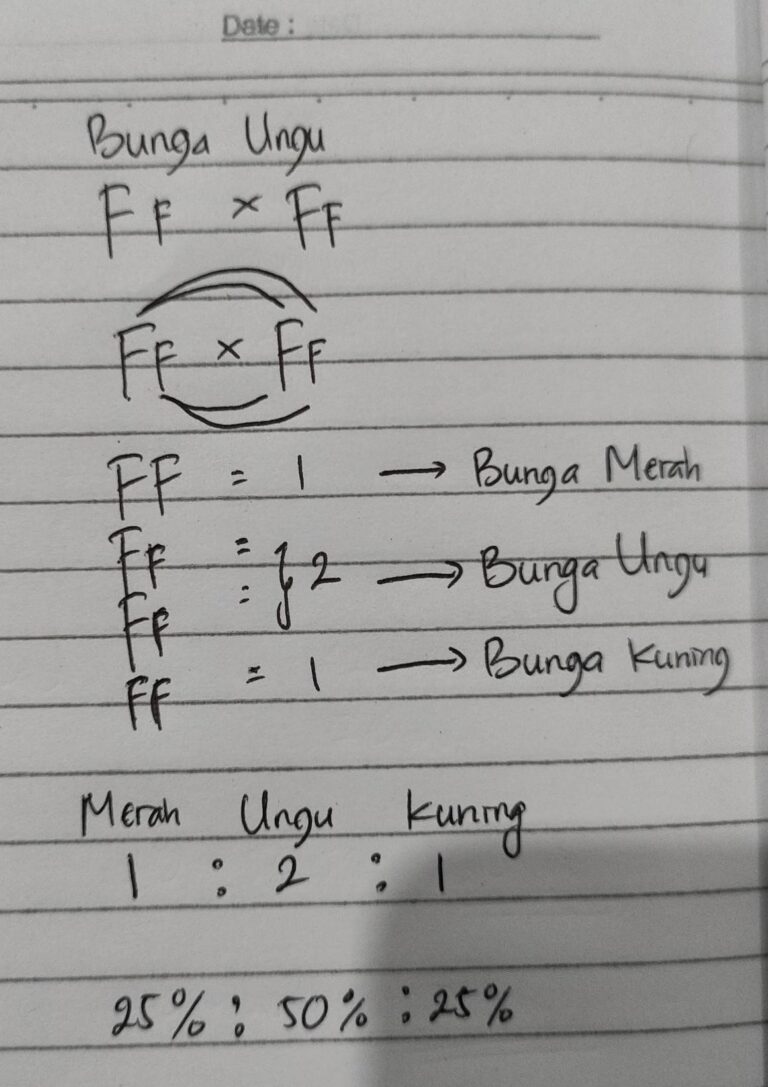 Date :
Bunga Ungu
FF × FF
FF × FF
FF = 1 → Bunga Merah
FF =
} 2 → Bunga Ungu
FF =
FF = 1 → Bunga Kuning
Merah Ungu Kuning
1 : 2 : 1
25% : 50% : 25%